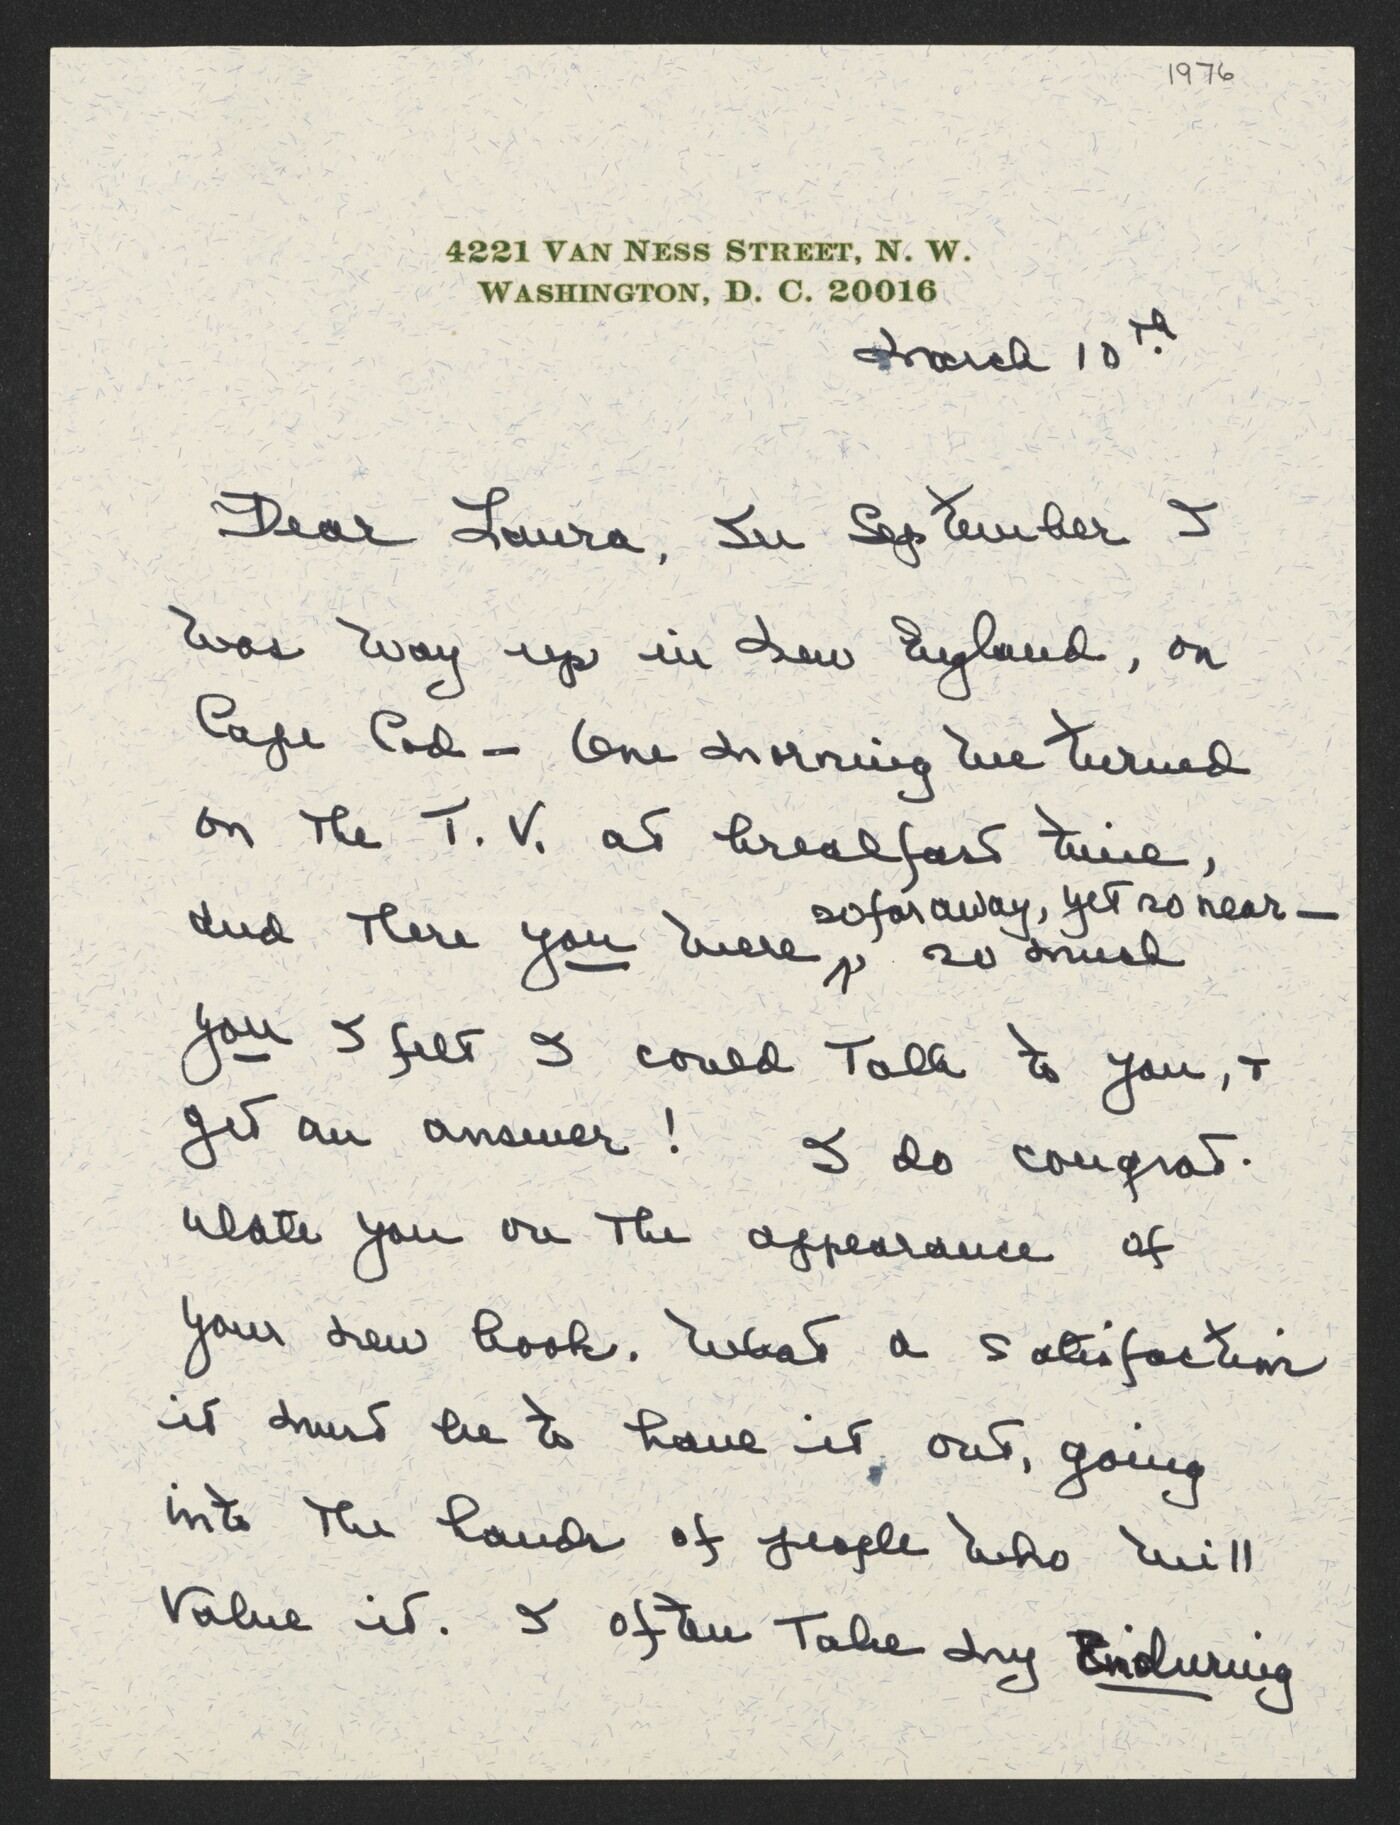 1976
4221 VAN NESS STREET, N. W.
WASHINGTON, D. C. 20016
March 10th.
Dear Laura, In September I
was way up in New England, on
Cape Cod — One morning we turned
on the T. V. at breakfast time,
so far away, yet so near —
and there you were, so much
you I felt I could talk to you, +
get an answer! I do congrat-
ulate you on the appearance of
your new book. What a satisfaction
it must be to have it out, going
into the hands of people who will
value it. I often take my Enduring